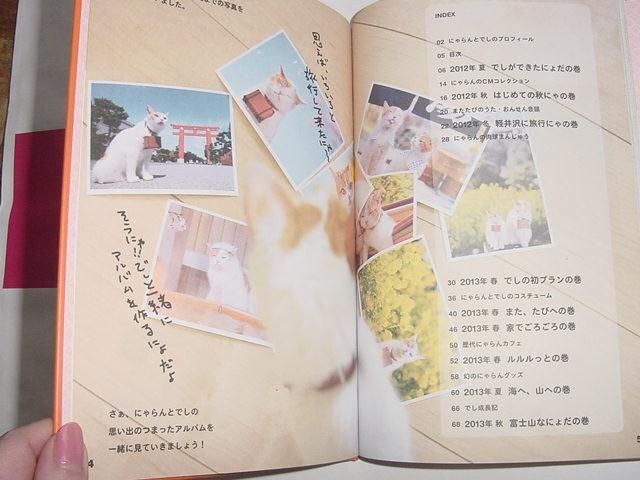 での写真を
ました。
思えば いろいろと
旅行して来たにゃ〜
そうにゃ!!でしと一緒に
アルバムを作るにょだよ
さぁ、にゃらんとでしの
思い出のつまったアルバムを
一緒に見ていきましょう!
4
INDEX
02 にゃらんとでしのプロフィール
05 目次
06 2012年 夏 でしができたにょだの巻
14 にゃらんのCMコレクション
16 2012年 秋 はじめての秋にゃの巻
20 またたびのうた・おんせん音頭
22 2012年 冬 軽井沢に旅行にゃの巻
28 にゃらんの肉球まんじゅう
30 2013年 春 でしの初プランの巻
36 にゃらんとでしのコスチューム
40 2013年 春 また、たびへの巻
46 2013年 春 家でごろごろの巻
50 歴代にゃらんカフェ
52 2013年 春 ルルルっとの巻
58 幻のにゃらんグッズ
60 2013年 夏 海へ、山への巻
66 でし成長記
68 2013年 秋 富士山なにょだの巻
5